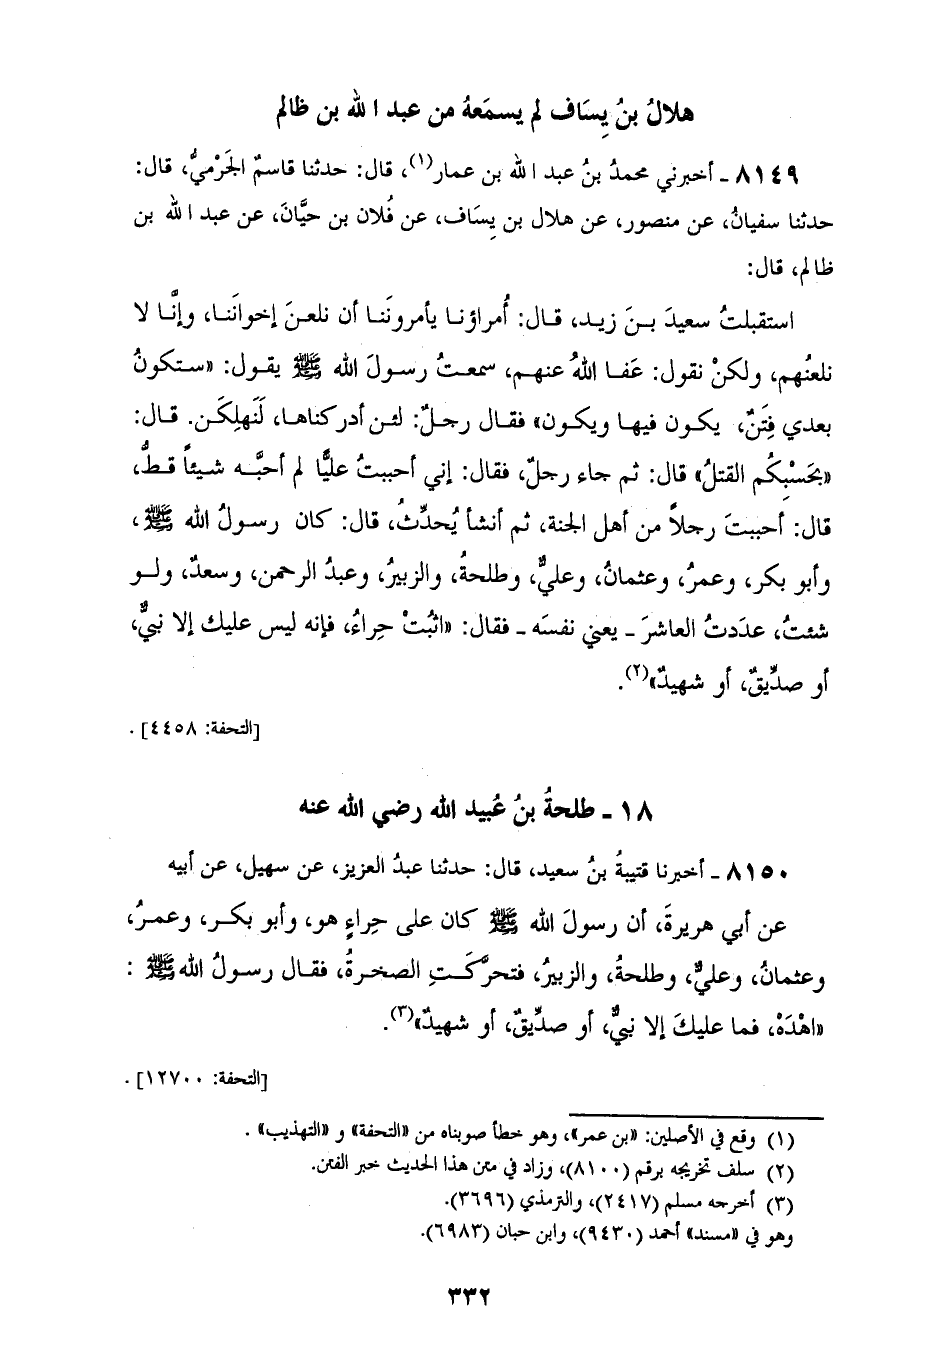 هلالُ بنُ يِسَاف لم يسمَعهُ من عبد الله بن ظالم
٨١٤٩ ـ أخبرني محمدُ بنُ عبد الله بن عمار(١)، قال: حدثنا قاسمٌ الجَرْميُّ، قال:
حدثنا سفيانُ، عن منصور، عن هلال بن يِسَاف، عن فُلان بن حيَّانَ، عن عبد الله بن
ظالم، قال:
استقبلتُ سعيدَ بـنَ زيـد، قـال: أُمراؤنـا يأمرونَنـا أن نلعـنَ إخوانَنـا، وإنَّـا لا
نلعنُهم، ولكنْ نقول: عَفـا اللهُ عنهـم، سمعـتُ رسـولَ الله ﷺ يقـول: «سـتكونُ
بعدي فِتَنٌ، يكـون فيهـا ويكـون» فقـال رجـلٌ: لئـن أدركناهـا، لَنَهلِكَـن. قـال:
«بحَسْبِكُم القتلُ» قال: ثم جاء رجلٌ، فقال: إني أحببتُ عليًّا لم أحبَّـه شيئاً قـطُّ،
قال: أحببتَ رجلاً من أهل الجنة، ثم أنشأ يُحدِّثُ، قال: كان رسولُ الله ﷺ،
وأبو بكر، وعمرُ، وعثمانُ، وعليٌّ، وطلحةُ، والزبيرُ، وعبدُ الرحمن، وسعدٌ، ولـو
شئتُ، عدَدتُ العاشرَ ـ يعني نفسَه ـ فقال: «اثبُتْ حِراءُ، فإنه ليس عليك إلا نبيٌّ،
أو صدِّيقٌ، أو شهيدٌ»(٢).
[التحفة: ٤٤٥٨].
١٨ ـ طلحةُ بنُ عُبيد الله رضي الله عنه
٨١٥٠ ـ أخبرنا قتيبةُ بنُ سعيد، قال: حدثنا عبدُ العزيز، عن سهيل، عن أبيه
عن أبي هريرةَ، أن رسولَ الله ﷺ كان على حِراءٍ هو، وأبو بكـر، وعمـرُ،
وعثمانُ، وعليٌّ، وطلحةُ، والزبيرُ، فتحرَّكَـتِ الصخـرةُ، فقـال رسـولُ الله ﷺ :
«اهْدَهْ، فما عليكَ إلا نبيٌّ، أو صدِّيقٌ، أو شهيدٌ»(٣).
[التحفة: ١٢٧٠٠].
(١) وقع في الأصلين: «ابن عمر»، وهو خطأ صوبناه من «التحفة» و «التهذيب» .
(٢) سلف تخريجه برقم (٨١٠٠)، وزاد في متن هذا الحديث خبر الفتن.
(٣) أخرجه مسلم (٢٤١٧)، والترمذي (٣٦٩٦).
وهو في «مسند» أحمد (٩٤٣٠)، وابن حبان (٦٩٨٣).
٣٣٢